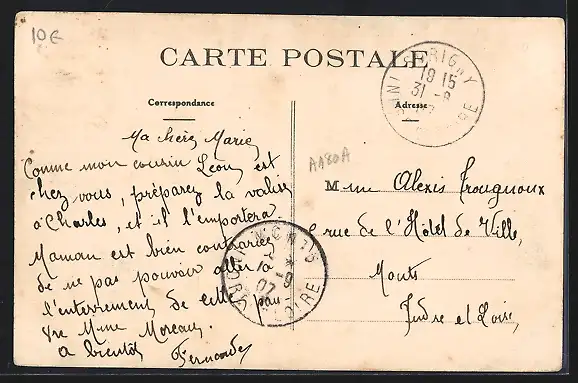 10€
CARTE POSTALE
Correspondance
Adresse
Ma chère Marie
Comme mon cousin Léon est
chez vous, préparez la valise
à Charles, et il l'emportera
Maman est bien contrariée
de ne pas pouvoir aller à
l'enterrement de cette pau
vre Mme Moreau,
A bientôt Fernande
A180A
Mme Alexis Trougnoux
rue de l'Hôtel de Ville,
Monts
Indre et Loire,
19 15
31 - 8
MONTS
- 9
07
INDRE
LOIRE